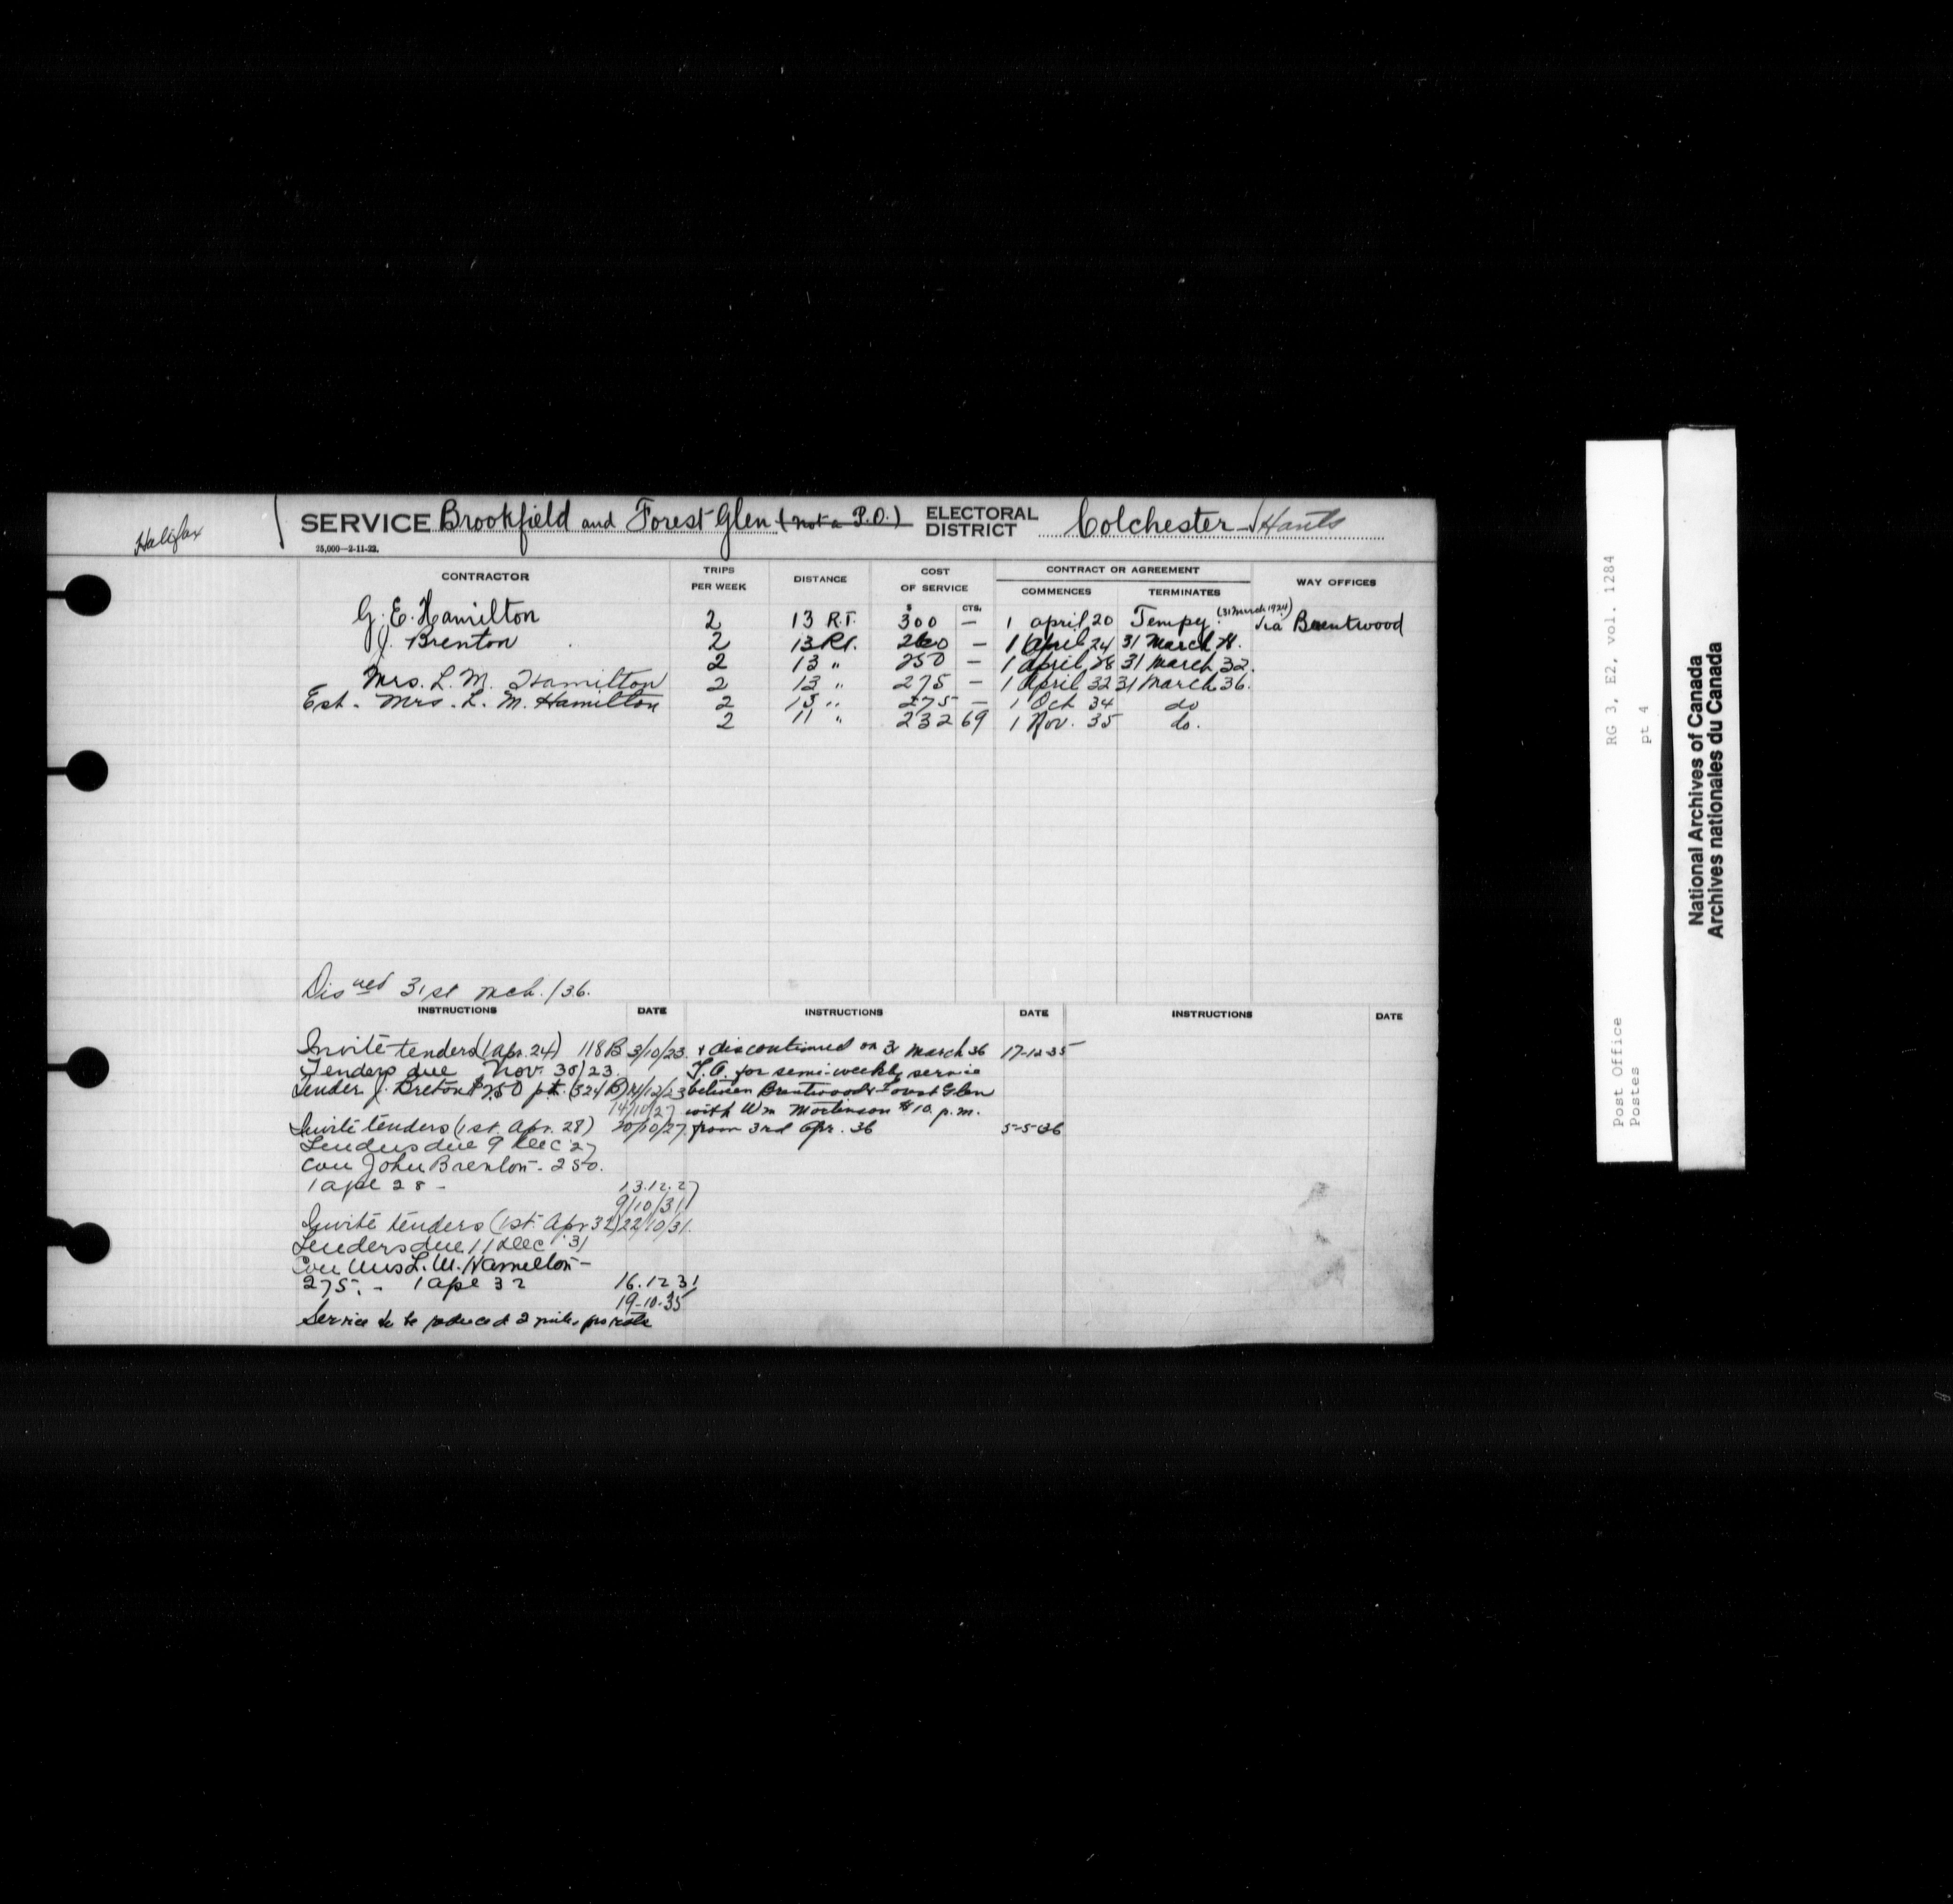 Halifax
SERVICE Brookfield and Forest Glen (not a P.O.) ELECTORAL DISTRICT Colchester - Hants
25,000—2-11-22.
CONTRACTOR TRIPS PER WEEK DISTANCE COST OF SERVICE CONTRACT OR AGREEMENT COMMENCES TERMINATES WAY OFFICES
$ CTS.
G. E. Hamilton 2 13 R.T. 300 — 1 April 20 Tempy. (31 March 1924) via Brentwood
J. Brenton 2 13 Rt. 260 — 1 April 24 31 March 28.
2 13 " 250 — 1 April 28 31 March 32.
Mrs. L. M. Hamilton 2 13 " 275 — 1 April 32 31 March 36.
Est. Mrs. L. M. Hamilton 2 13 " 275 — 1 Oct 34 do
2 11 " 232 69 1 Nov. 35 do.
Dis ued 31st Mch. /36.
INSTRUCTIONS DATE INSTRUCTIONS DATE INSTRUCTIONS DATE
Invite tenders (1 Apr. 24) 118 B 3/10/23.
Tenders due Nov. 30/23.
Tender J. Breton $250 pt. (324 B) 14/12/23
14/10/27
Invite tenders (1st. Apr. 28) 20/10/27
Tenders due 9 Dec 27
Con John Brenton - 250.
1 Ape 28 - 13.12.27
9/10/31
Invite tenders (1st. Apr 32) 22/10/31.
Tenders due 11 Dec '31
Con Mrs L. M. Hamilton -
275. - 1 Ape 32 16.12.31
19-10-35
Service to be reduced 2 miles pro rata
& discontinued on 31 March 36 17-12-35
T.A. for semi-weekly service
between Brentwood & Forest Glen
with Wm Mortinson $10 p.m.
from 3rd Apr. 36 5-5-36
RG 3, E2, vol. 1284
pt 4
Post Office
Postes
National Archives of Canada
Archives nationales du Canada